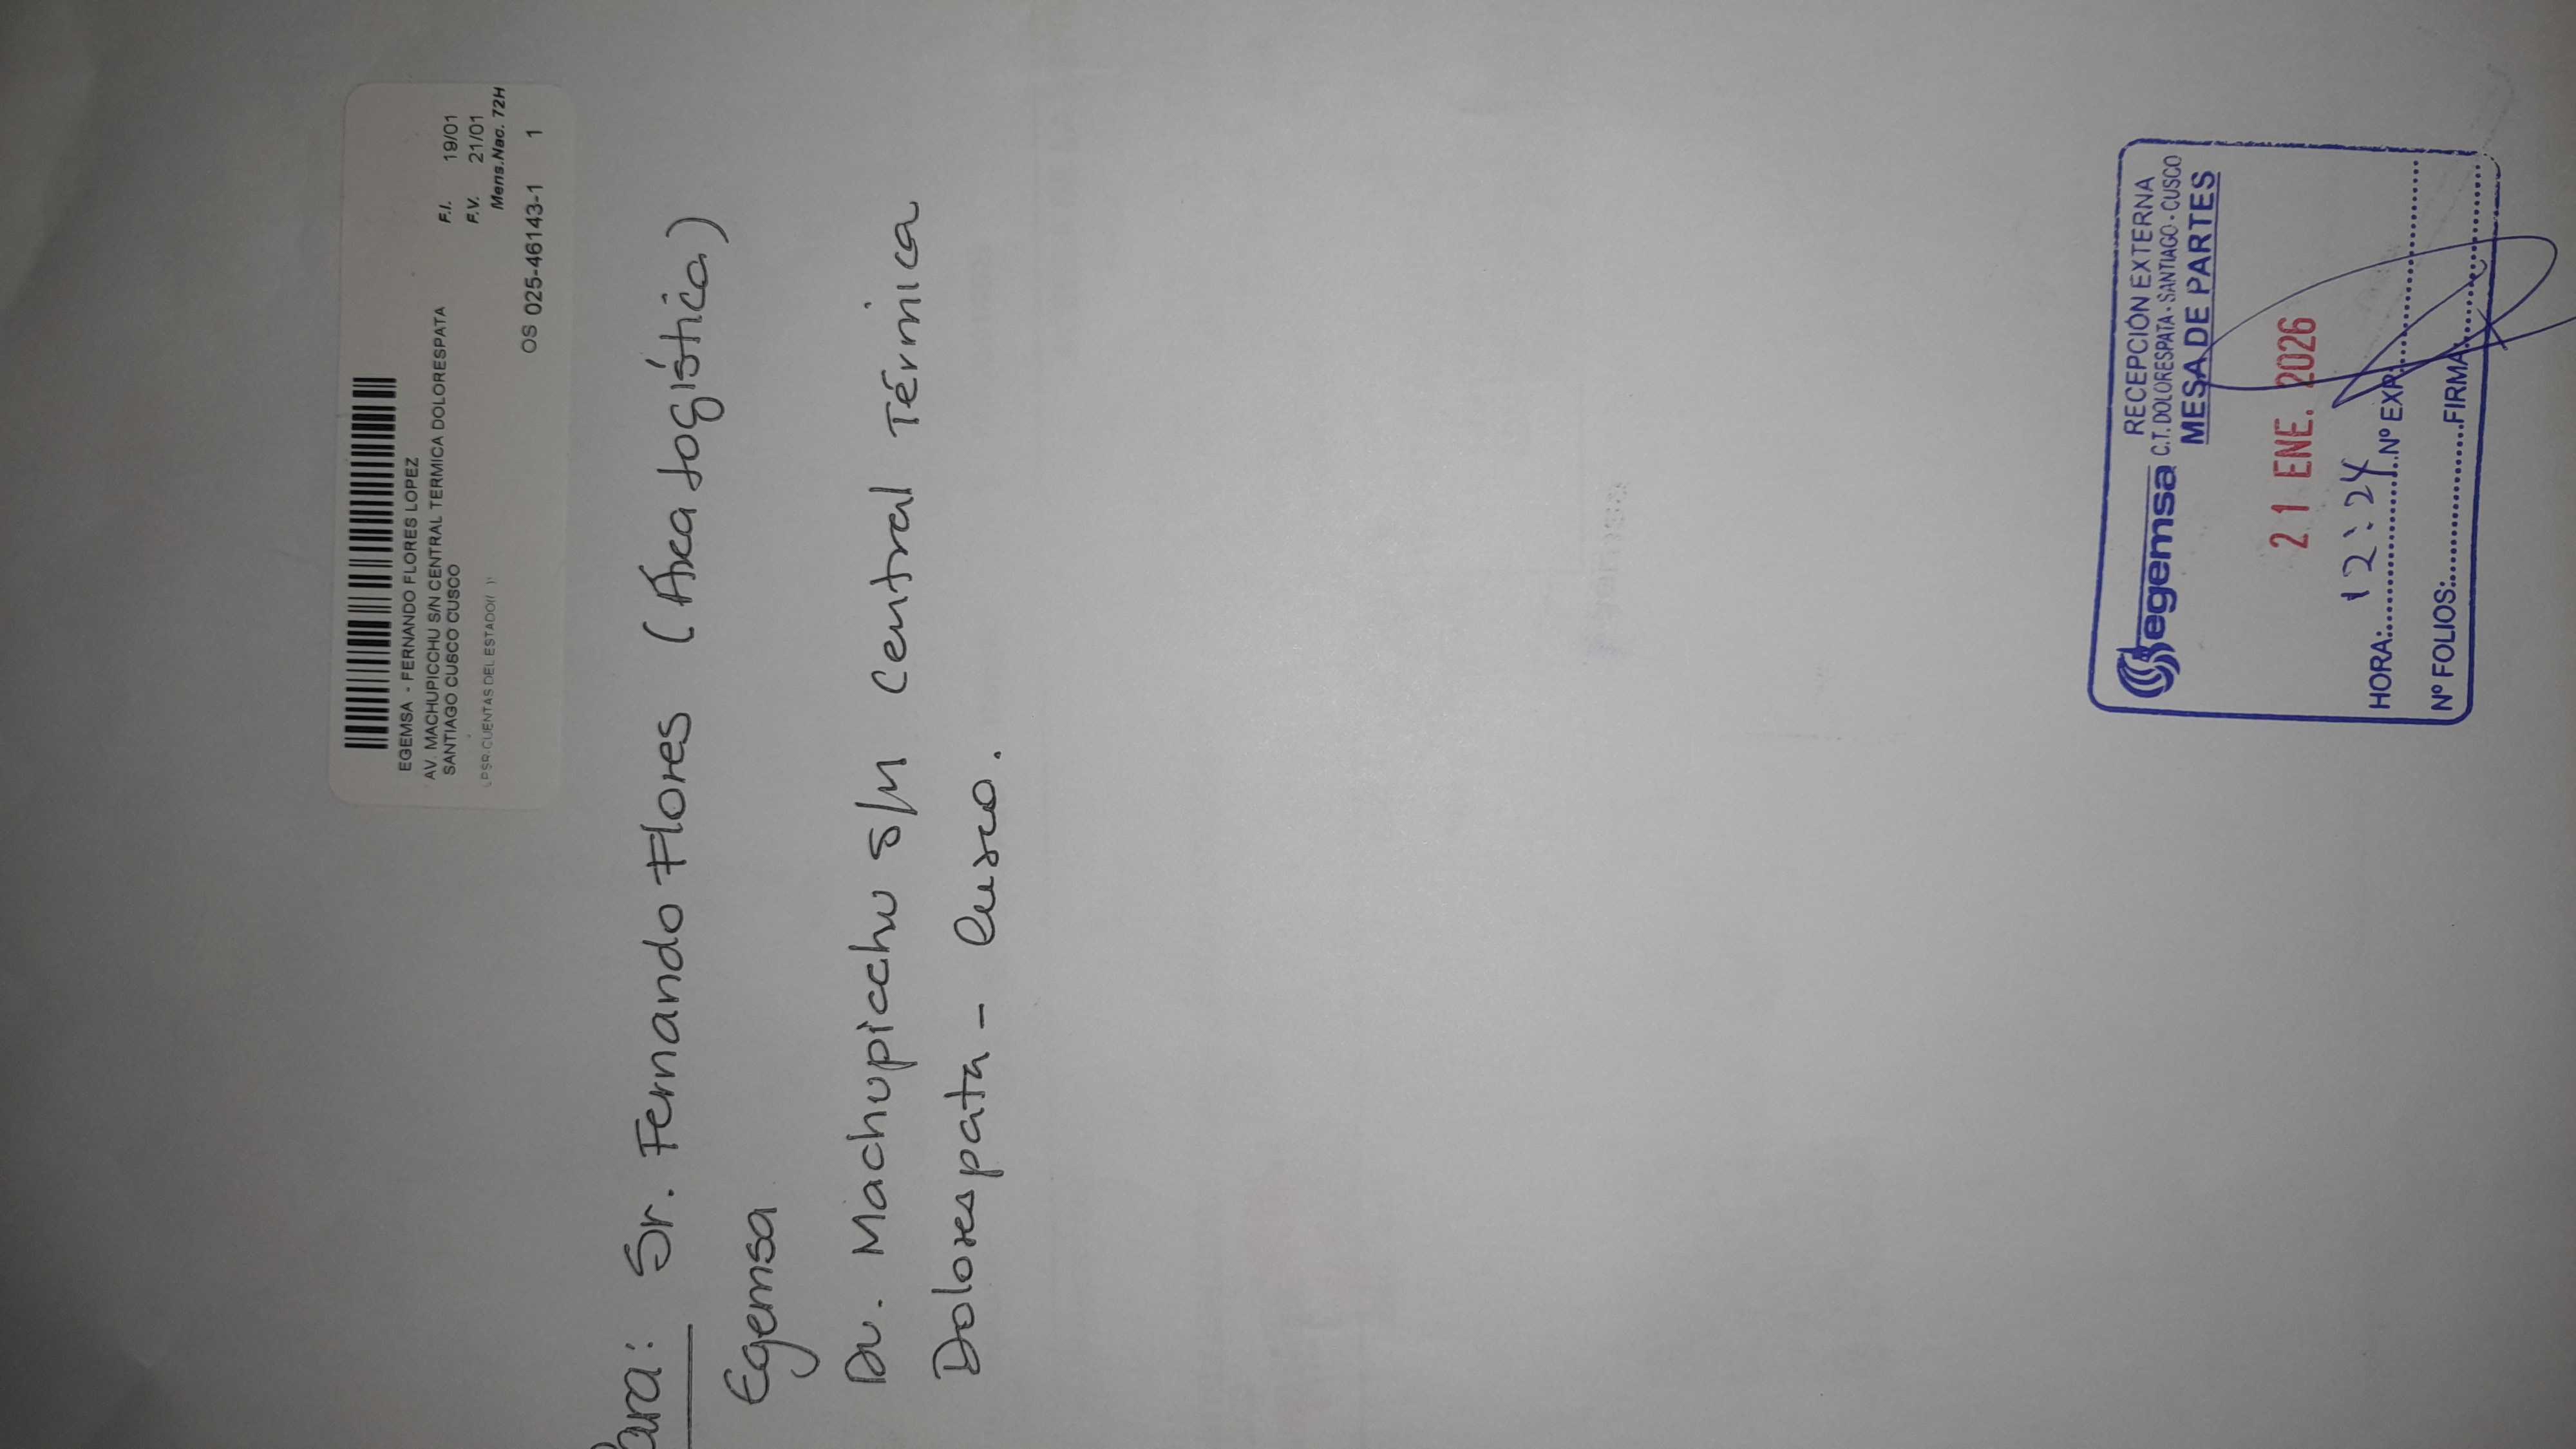 EGEMSA - FERNANDO FLORES LOPEZ
AV. MACHUPICCHU S/N CENTRAL TERMICA DOLORESPATA
SANTIAGO CUSCO CUSCO
F.I. 19/01
F.V. 21/01
Mens.Nac. 72H
CUENTAS DEL ESTADO
OS 025-46143-1 1
Para: Sr. Fernando Flores (Área Logística)
Egemsa
Av. Machupicchu S/N Central Térmica
Dolorespata - Cusco.
egemsa
RECEPCIÓN EXTERNA
C.T. DOLORESPATA - SANTIAGO - CUSCO
MESA DE PARTES
21 ENE. 2026
HORA: 12:24 Nº EXP.
Nº FOLIOS: FIRMA